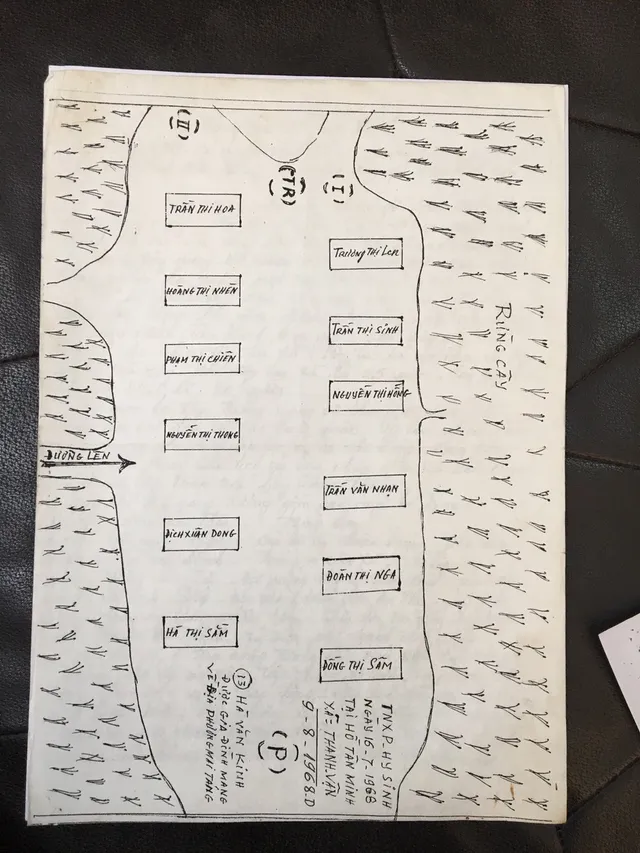 (II)
(TR)
(I)
TRẦN THỊ HOA
TRƯƠNG THỊ LEN
HOÀNG THỊ NHÊN
TRẦN THỊ SINH
PHẠM THỊ CHIẾN
NGUYỄN THỊ HỒNG
RỪNG CÂY
NGUYỄN THỊ THONG
ĐƯỜNG LÊN
TRẦN VĂN NHẠN
DỊCH XUÂN DONG
ĐOÀN THỊ NGA
HÀ THỊ SẮM
ĐỒNG THỊ SÂM
(13) HÀ VĂN KÍNH
ĐƯỢC GIA ĐÌNH MANG
VỀ ĐỊA PHƯƠNG MAI TÁNG
(P)
TNXP. HY SINH
NGÀY 16-7-1968
TẠI HỒ TÂN MINH
XÃ: THANH VÂN
9-8-1968.D